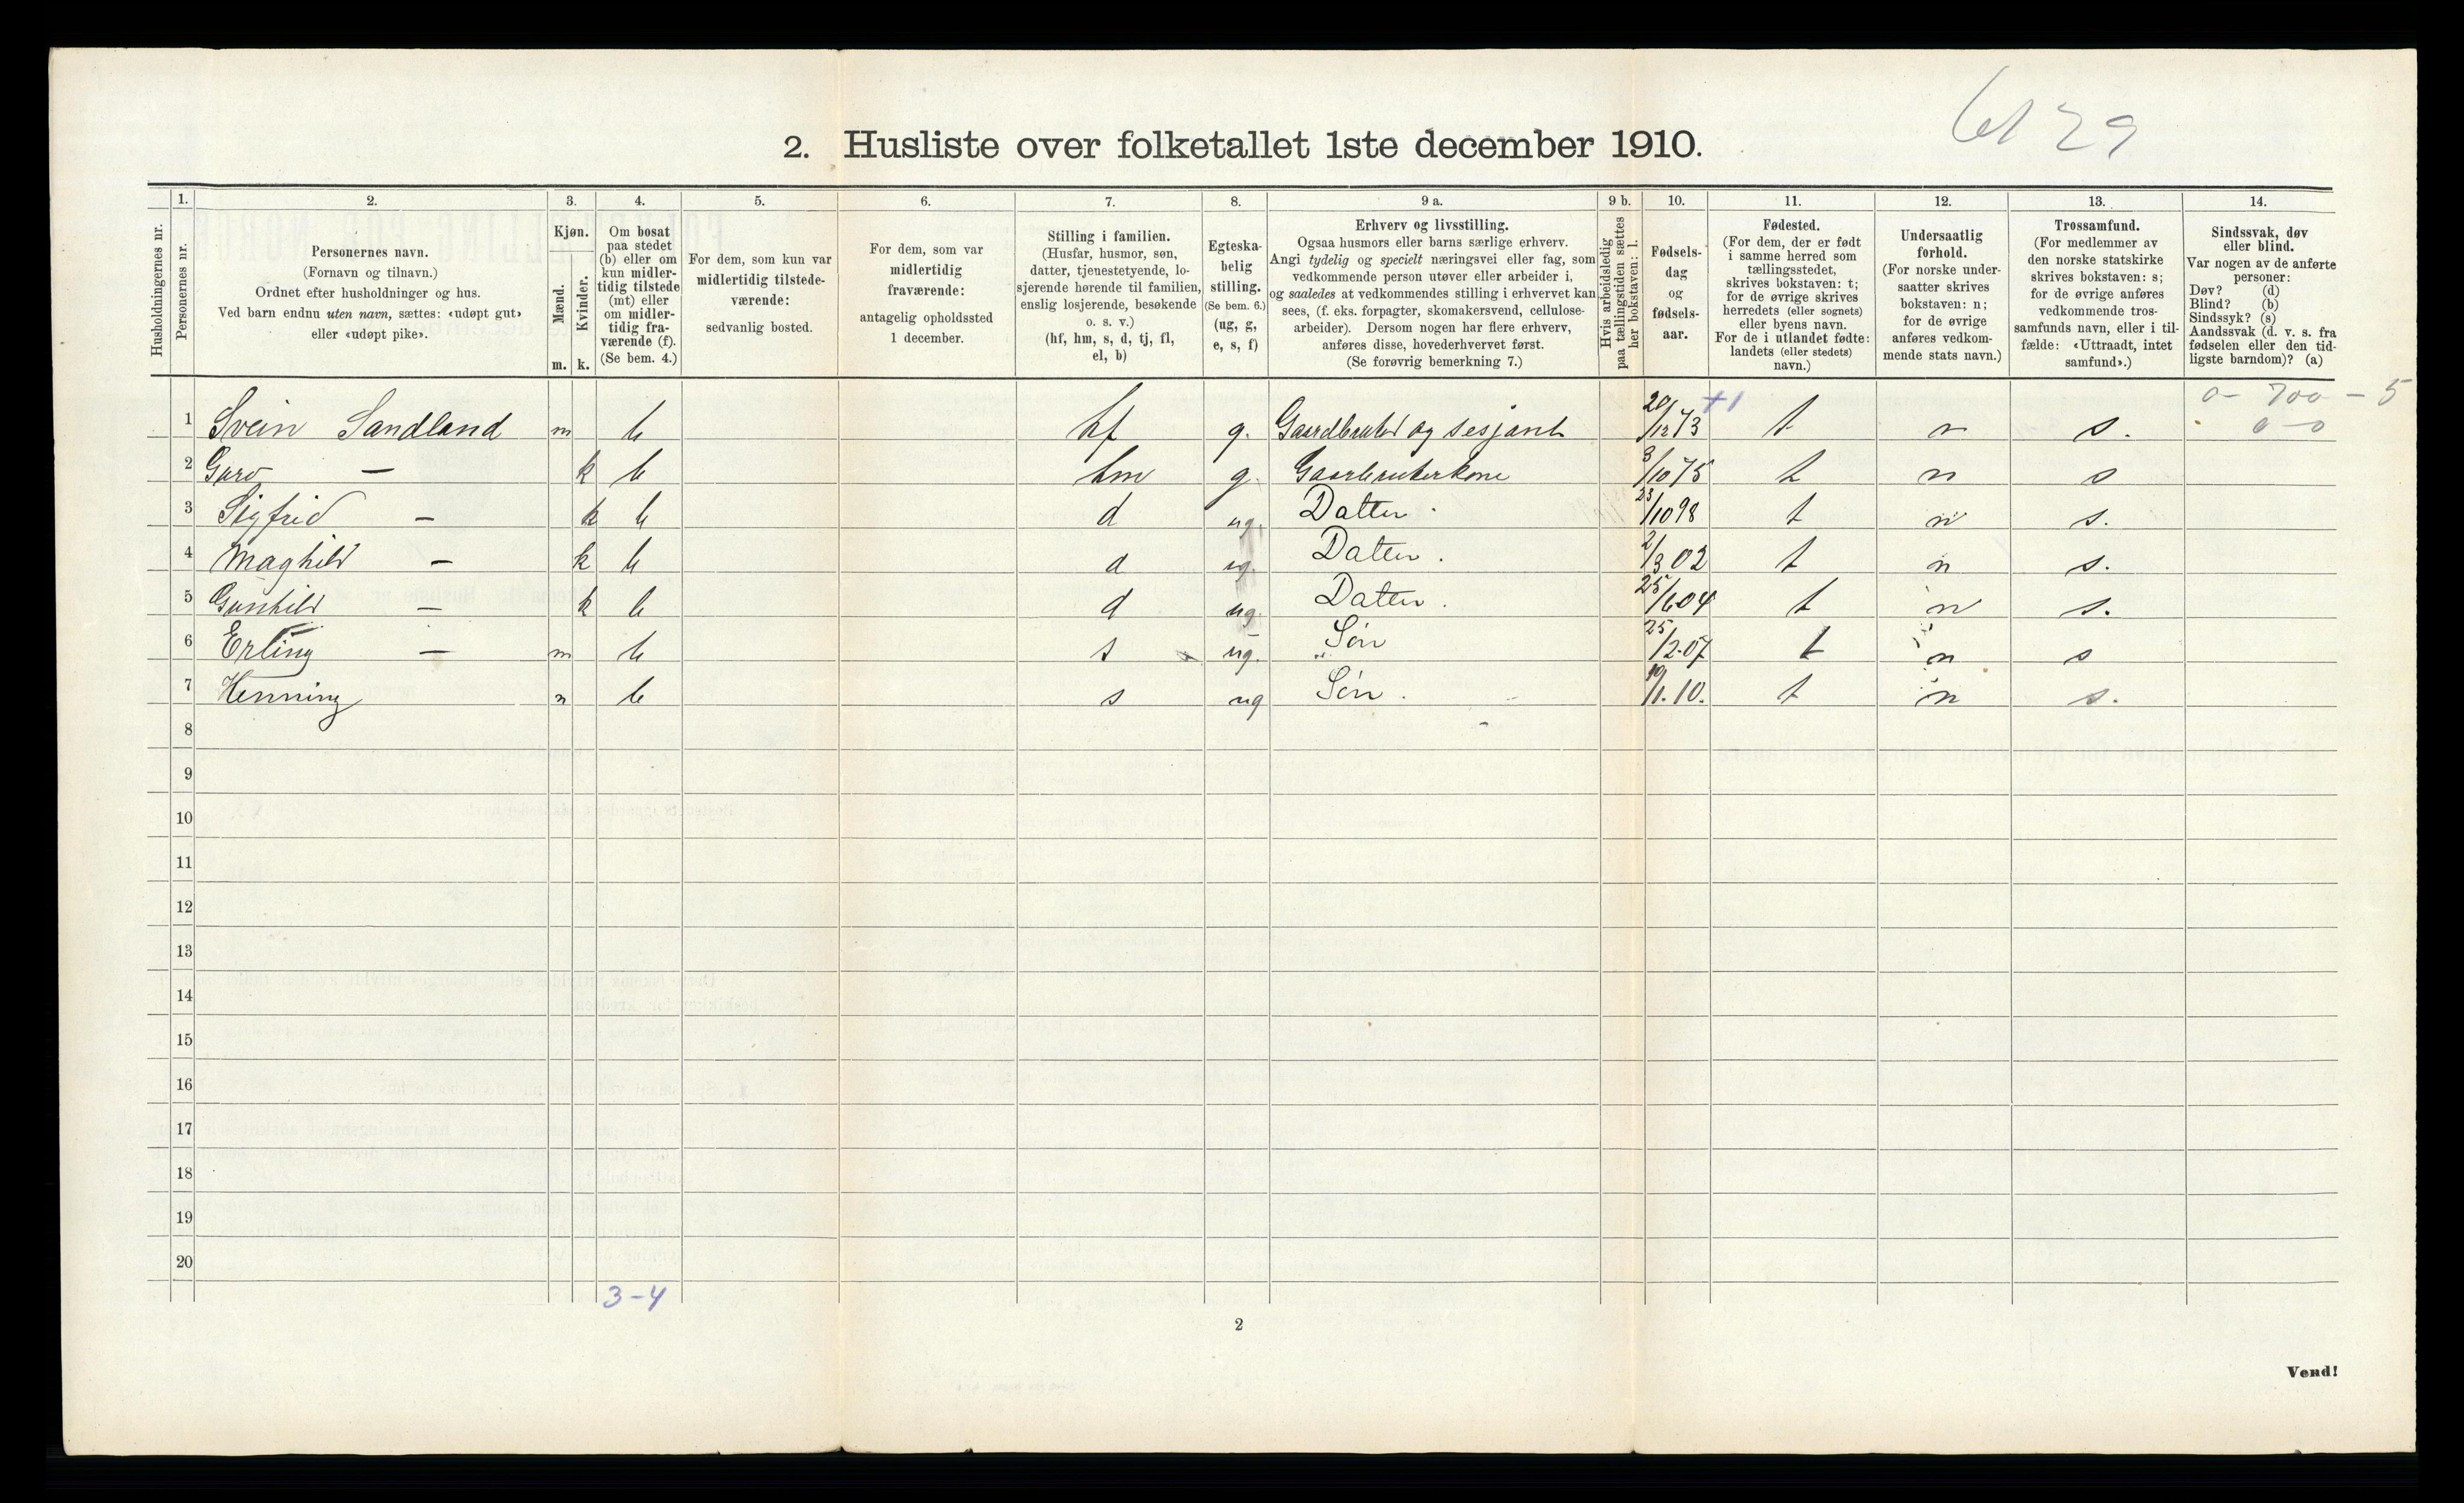 6129
2. Husliste over folketallet 1ste december 1910.
Husholdningernes nr.
1. Personernes nr.
2. Personernes navn.
(Fornavn og tilnavn.)
Ordnet efter husholdninger og hus.
Ved barn endnu uten navn, sættes: «udøpt gut»
eller «udøpt pike».
3. Kjøn.
Mænd. m.
Kvinder. k.
4. Om bosat
paa stedet
(b) eller om
kun midler-
tidig tilstede
(mt) eller
om midler-
tidig fra-
værende (f).
(Se bem. 4.)
5. For dem, som kun var
midlertidig tilstede-
værende:
sedvanlig bosted.
6. For dem, som var
midlertidig
fraværende:
antagelig opholdssted
1 december.
7. Stilling i familien.
(Husfar, husmor, søn,
datter, tjenestetyende, lo-
sjerende hørende til familien,
enslig losjerende, besøkende
o. s. v.)
(hf, hm, s, d, tj, fl,
el, b)
8. Egteska-
belig
stilling.
(Se bem. 6.)
(ug, g,
e, s, f)
9 a. Erhverv og livsstilling.
Ogsaa husmors eller barns særlige erhverv.
Angi tydelig og specielt næringsvei eller fag, som
vedkommende person utøver eller arbeider i,
og saaledes at vedkommendes stilling i erhvervet kan
sees, (f. eks. forpagter, skomakersvend, cellulose-
arbeider). Dersom nogen har flere erhverv,
anføres disse, hovederhvervet først.
(Se forøvrig bemerkning 7.)
9 b. Hvis arbeidsledig
paa tællingstiden sættes
her bokstaven: l.
10. Fødsels-
dag
og
fødsels-
aar.
11. Fødested.
(For dem, der er født
i samme herred som
tællingsstedet,
skrives bokstaven: t;
for de øvrige skrives
herredets (eller sognets)
eller byens navn.
For de i utlandet fødte:
landets (eller stedets)
navn.)
12. Undersaatlig
forhold.
(For norske under-
saatter skrives
bokstaven: n;
for de øvrige
anføres vedkom-
mende stats navn.)
13. Trossamfund.
(For medlemmer av
den norske statskirke
skrives bokstaven: s;
for de øvrige anføres
vedkommende tros-
samfunds navn, eller i til-
fælde: «Uttraadt, intet
samfund».)
14. Sindssvak, døv
eller blind.
Var nogen av de anførte
personer:
Døv? (d)
Blind? (b)
Sindssyk? (s)
Aandssvak (d. v. s. fra
fødselen eller den tid-
ligste barndom)? (a)
+1 0 - 700 - 5
1 Svein Sandland m b hf g. Gaardbruker og sesjant 20/12 73 t n s. 0 - 0
2 Guro — k b hm g. Gaarbrukerkone 3/10 75 t n s
3 Sigfrid — k b d ug. Datter 23/10 98 t n s.
4 Maghild — k b d ug. Datter. 2/3 02 t n s.
5 Gunhild — k b d ug. Datter. 25/6 04 t n s.
6 Erling — m b s ug. Søn 25/2.07 t n s
7 Henning m b s ug Søn. 19/1.10. t n s.
8
9
10
11
12
13
14
15
16
17
18
19
20
3-4
2
Vend!